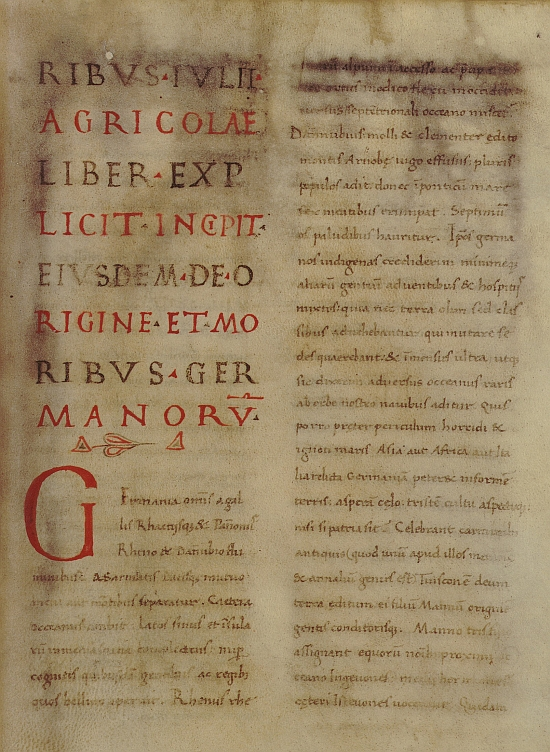 RIBVS·IVLII·
AGRICOLAE
LIBER·EXP
LICIT·INCEPIT·
EIVSDEM·DE·O
RIGINE·ET·MO
RIBVS·GER
MANORV̅·
Germania omīs a gal
lis Rhaetijsq; & Pānonijs
Rheno & Danubio flu
minibus: a Sarmatis Dacisq; mutuo
metu aut mōtibus separatur. Caetera
occeanus ambit latos sinus et īsula
rū immensa spatia complectens nup
cognitis quibusdā gentibus ac regibꝰ
quos bellum aperuit. Rhenus rhe
alpium īaccesso ac
modico flexu in occidētē
uersus septētrionali occeano miscet.
Danubius molli & clementer edito
montis Arnobę iugo effusus: pluris
populos adit donec ī ponticū mare
meatibus erumpat. Septimū
os paludibus hauritur. Ip̄os germa
nos indigenas crediderim minimeq;
aliarū gentiū aduentibus & hospitijs
mixtos; quia nec terra olim sed clas
sibus aduehebantur qui mutare se
des quaerebant: & īmensus ultra utq;
sic dixerim aduersus occeanus raris
ab orbe nostro nauibus aditur. Quis
porro pręter periculum horridi &
ignoti maris Asia aut Africa aut Ita
lia relicta Germaniā peteret informē
terris: asperā cęlo: tristē cultu aspectuq;
nisi si patria sit. Celebrant carminibꝰ
antiquis (quod unū apud illos
& annaliū genus est) Tuisconē deum
terra editum et filiū Mannū originē
gentis conditorisq;. Manno tris
assignant ē quorū noībꝰ proximi oc
ceano Ingeuones: medij hermiones
cęteri Isteuones uocentur. Quidam